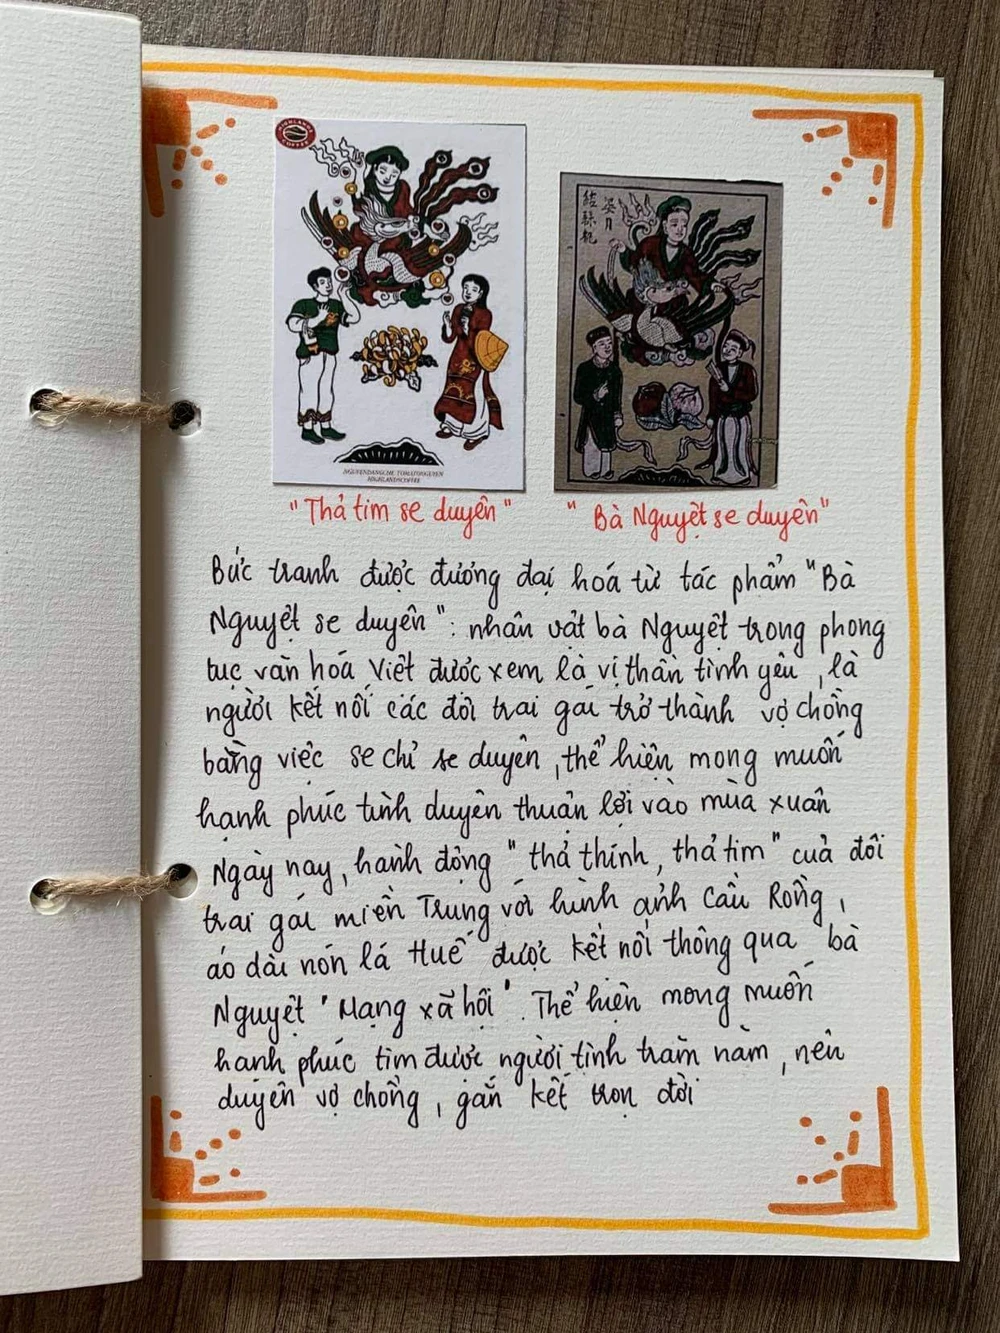 HIGHLANDS
COFFEE
NGUYENDANGCHE TOBIATONGUYEN
HIGHLANDSCOFFEE
"Thả tim se duyên"
"Bà Nguyệt se duyên"
Bức tranh được đương đại hoá từ tác phẩm "Bà
Nguyệt se duyên": nhân vật bà Nguyệt trong phong
tục văn hoá Việt được xem là vị thần tình yêu, là
người kết nối các đôi trai gái trở thành vợ chồng
bằng việc se chỉ se duyên, thể hiện mong muốn
hạnh phúc tình duyên thuận lợi vào mùa xuân
Ngày nay, hành động "thả thính, thả tim" cuả đôi
trai gái miền Trung với hình ảnh Cầu Rồng,
áo dài nón lá Huế được kết nối thông qua bà
Nguyệt "Mạng xã hội". Thể hiện mong muốn
hạnh phúc tìm được người tình trăm năm, nên
duyên vợ chồng, gắn kết trọn đời